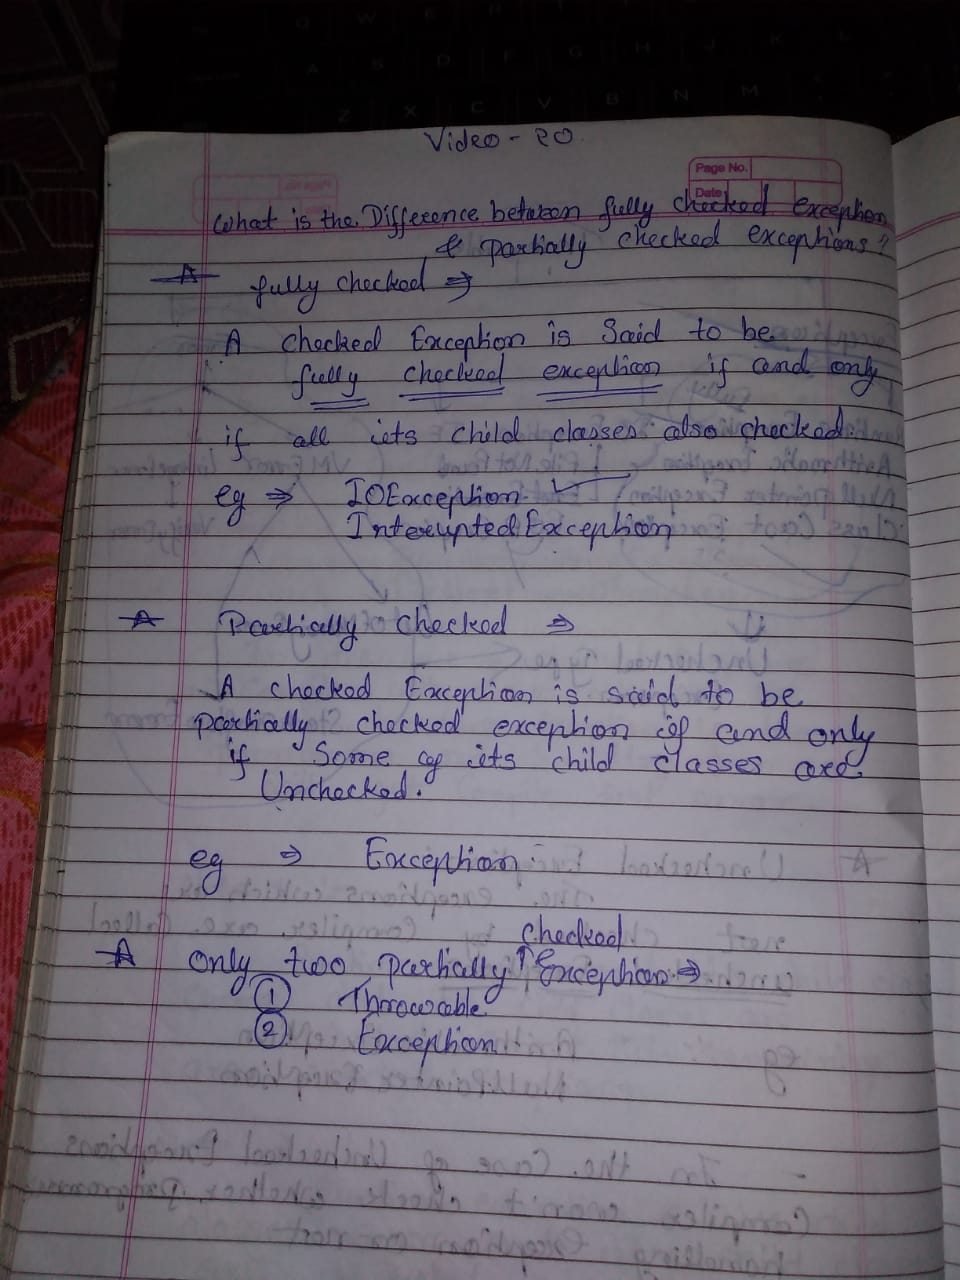 Video - 20
Page No.
Date
What is the Difference between fully checked exception
& partially checked exceptions?
fully checked ⇒
A checked Exception is Said to be
fully checked exception if and only
if all its child classes also checked.
eg ⇒ IOException
InterruptedException
Partially checked ⇒
A checked Exception is said to be
partially checked exception if and only
if Some of its child classes are
Unchecked.
eg ⇒ Exception
checked
only two partially ↑ Exception ⇒
① Throwable
② Exception